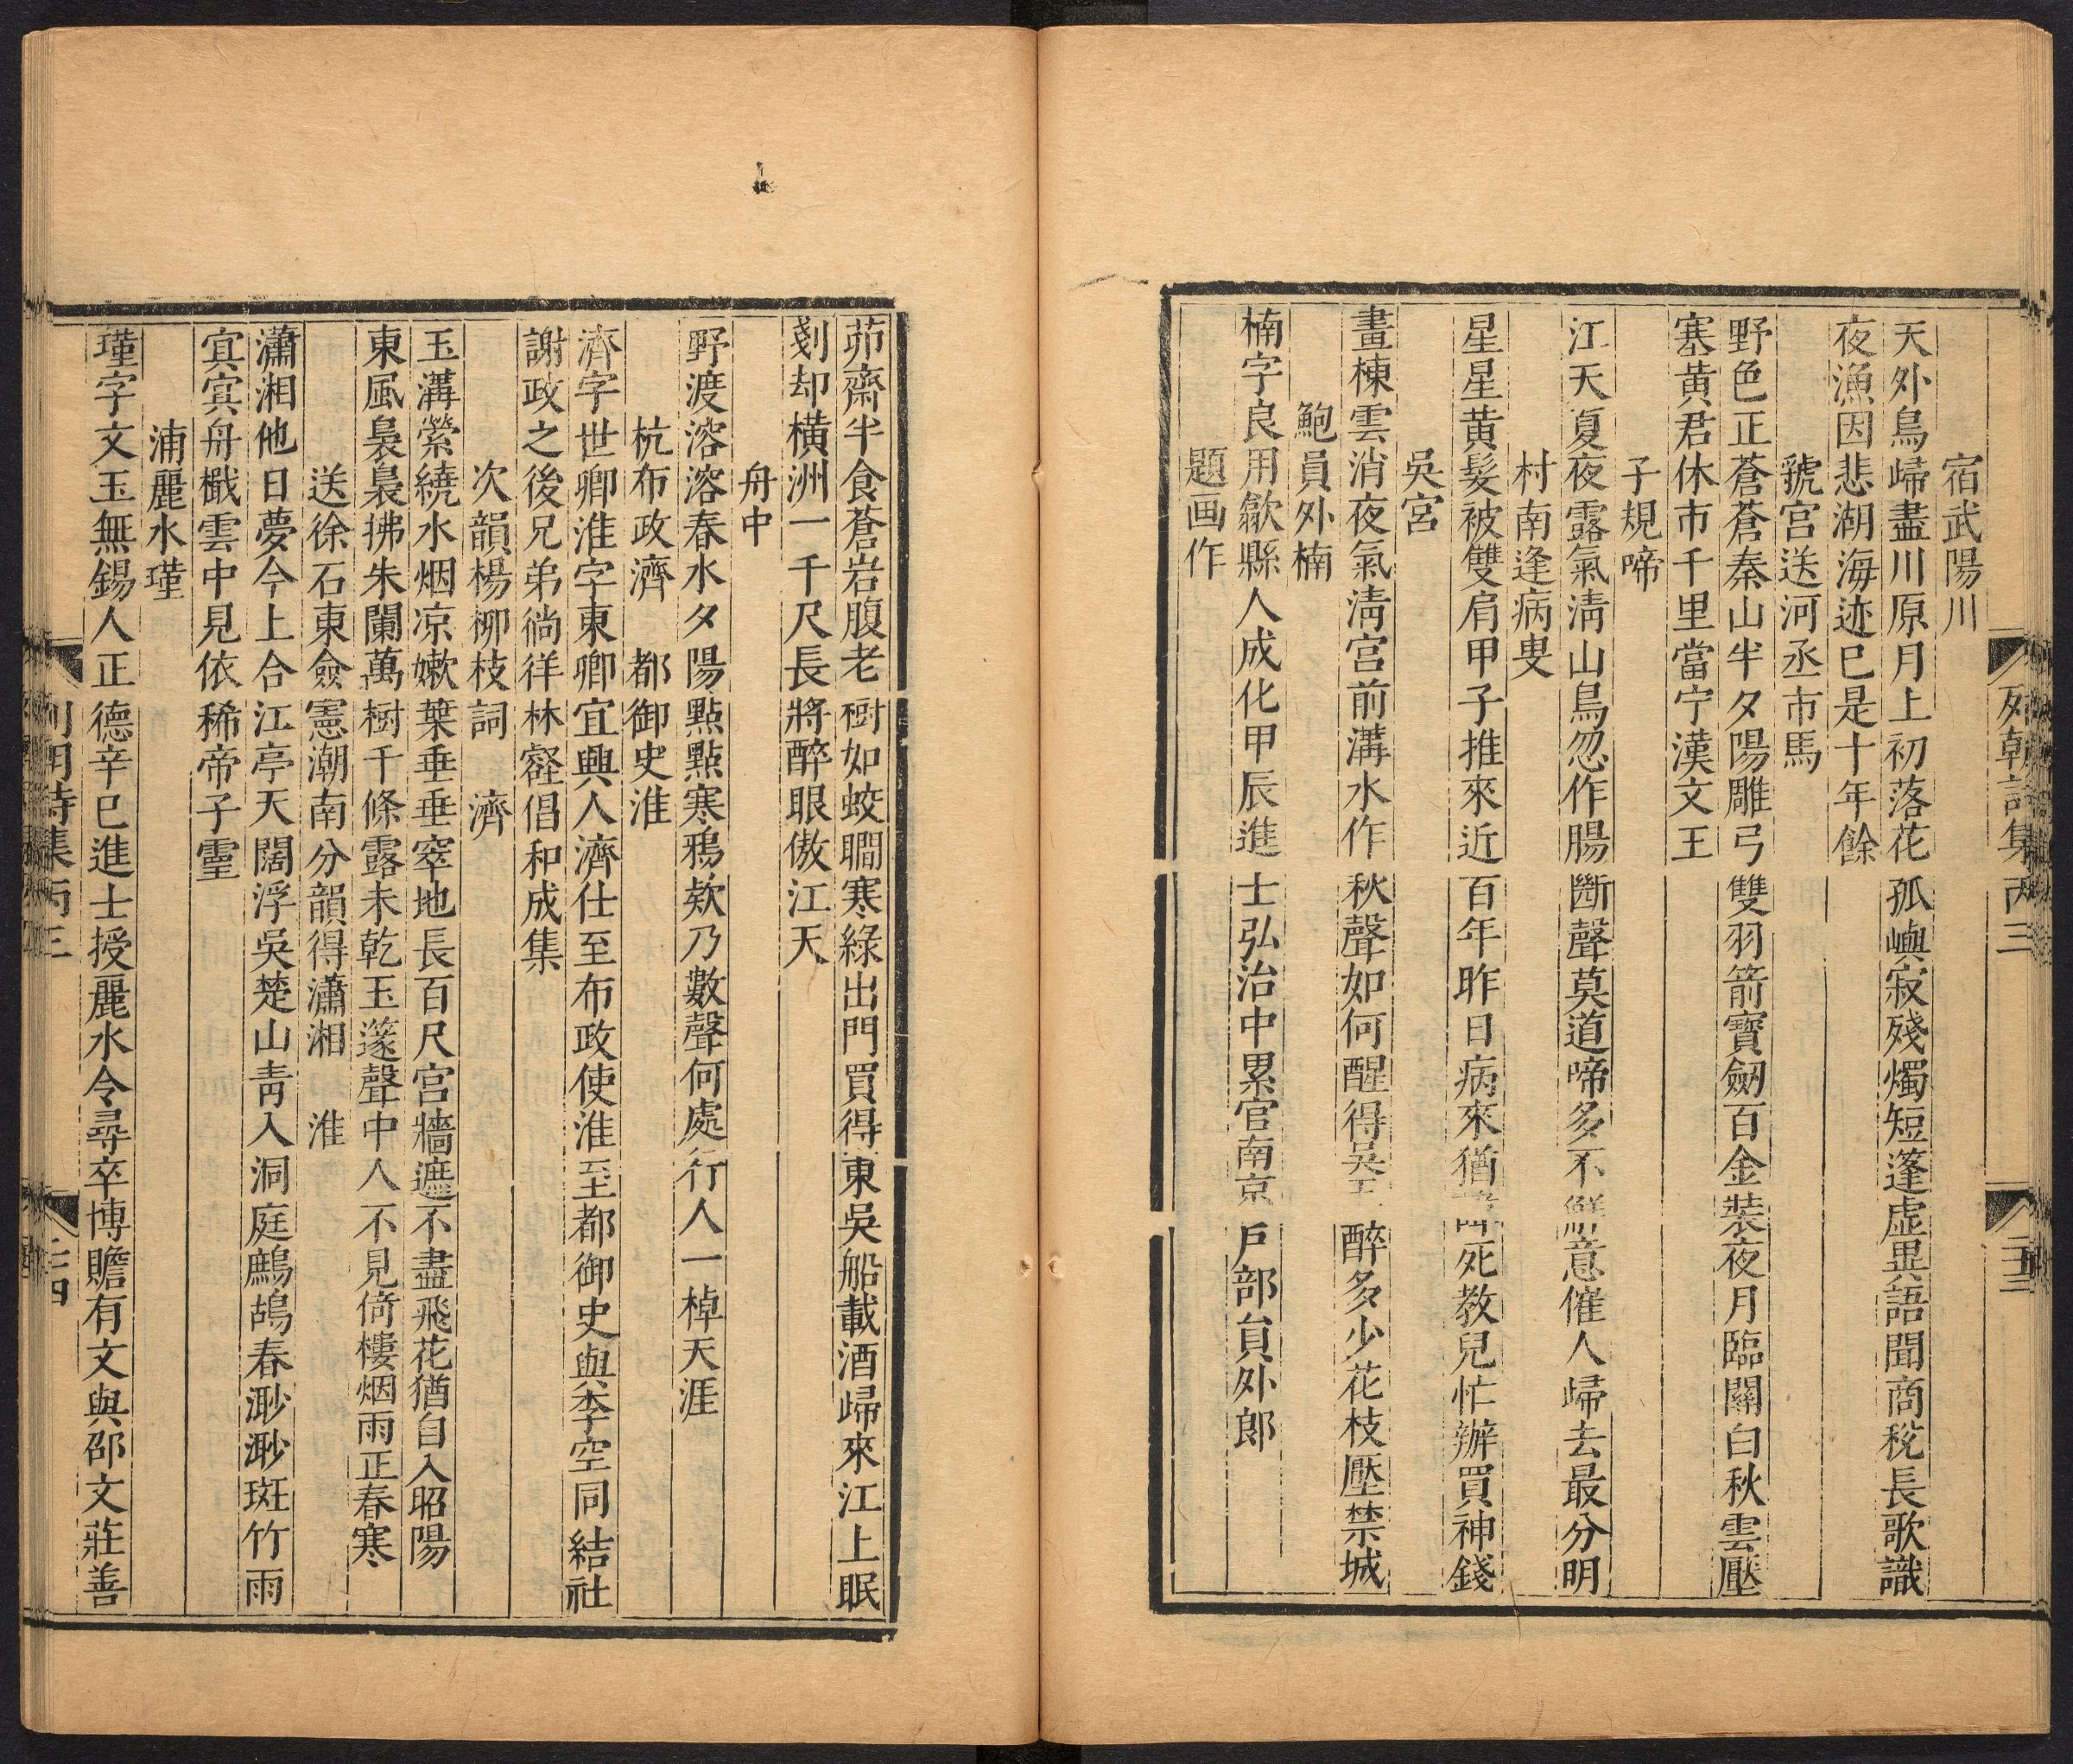 宿武陽川
天外鳥歸盡川原月上初落花孤嶼寂殘燭短蓬虛畏語聞商稅長歌識
夜漁因悲湖海迹已是十年餘
虢宮送河丞市馬
野色正蒼蒼秦山半夕陽雕弓雙羽箭寶劒百金裝夜月臨關白秋雲壓
塞黄君休市千里當宁漢文王
子規啼
江天夏夜露氣淸山鳥忽作腸斷聲莫道啼多不解意催人歸去最分明
村南逢病叟
星星黄髮被雙肩甲子推來近百年昨日病來猶 死教兒忙辦買神錢
吳宮
畫棟雲消夜氣淸宮前溝水作秋聲如何醒得吳王醉多少花枝壓禁城
鮑員外楠
楠字良用歙縣人成化甲辰進士弘治中累官南京戶部員外郎
題画作
列朝詩集丙三
茆齋半食蒼岩腹老樹如蛟瞷寒綠出門買得東吳船載酒歸來江上眠
剗却橫洲一千尺長將醉眼傲江天
舟中
野渡溶溶春水夕陽點點寒鴉欸乃數聲何處行人一棹天涯
杭布政濟 都御史淮
濟字世卿淮字東卿宜興人濟仕至布政使淮至都御史與李空同結社
謝政之後兄弟徜徉林壑倡和成集
次韻楊柳枝詞 濟
玉溝縈繞水烟凉嫰葉垂垂窣地長百尺宮牆遮不盡飛花猶自入昭陽
東風裊裊拂朱闌萬樹千條露未乾玉篴聲中人不見倚樓烟雨正春寒
送徐石東僉憲潮南分韻得瀟湘 淮
瀟湘他日夢今上合江亭天闊浮吳楚山靑入洞庭鷓鴣春渺渺斑竹雨
冥冥舟檥雲中見依稀帝子靈
浦麗水瑾
瑾字文玉無錫人正德辛巳進士授麗水令尋卒博贍有文與邵文莊善